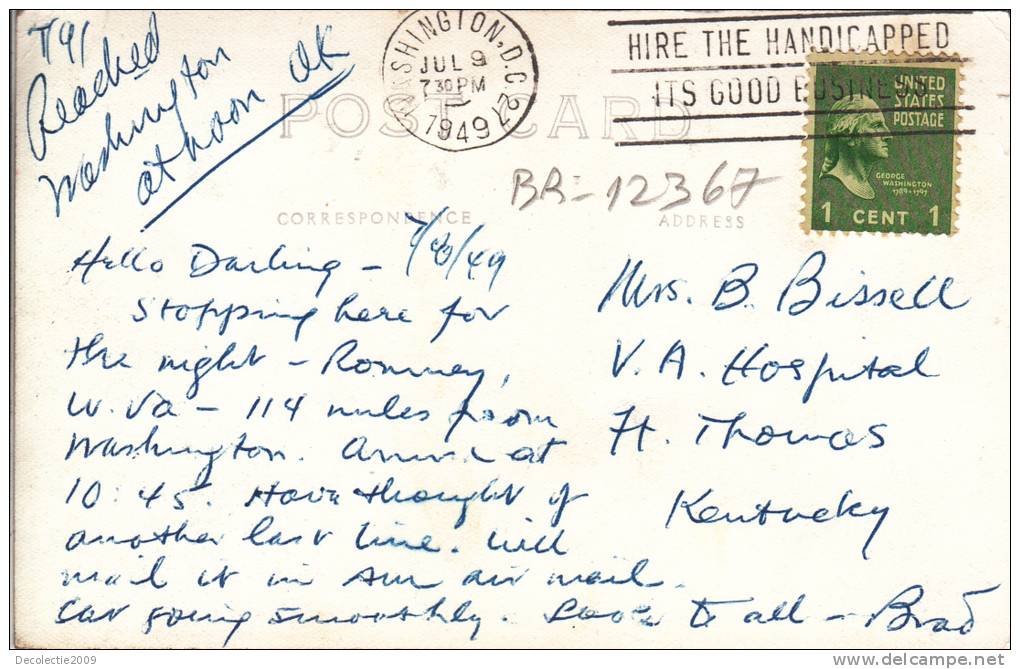 7/9/
Reached
Washington OK
at noon
WASHINGTON, D.C.
JUL 9
7 30 PM
1949
HIRE THE HANDICAPPED
ITS GOOD BUSINESS
UNITED
STATES
POSTAGE
GEORGE
WASHINGTON
1789-1797
1 CENT 1
POST CARD
BR-12367
CORRESPONDENCE
ADDRESS
Hello Darling - 7/8/49
Stopping here for
the night - Romney,
W. Va - 114 miles from
Washington. Arrive at
10:45. Have thought of
another last line. Will
mail it in air mail.
Car going smoothly. Love to all - Brad
Mrs. B. Bissell
V.A. Hospital
Ft. Thomas
Kentucky
Decolectie2009
delcampe.net